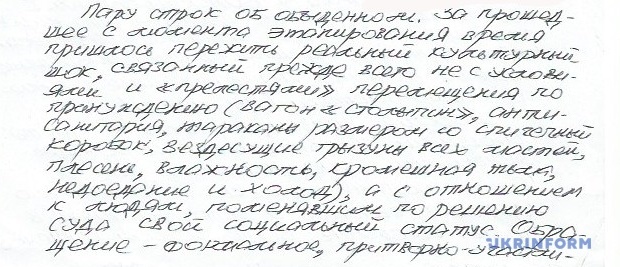 Пару строк об обыденном. За прошед-
шее с момента этапирования время
пришлось пережить реальный культурный
шок, связанный прежде всего не с услови-
ями и «прелестями» перемещения по
принуждению (вагон «столыпин», анти-
санитария, тараканы размером со спичечный
коробок, вездесущие грызуны всех мастей,
плесень, влажность, кромешная тьма,
недоедание и холод), а с отношением
к людям, поменявшим по решению
суда свой социальный статус. Обра-
щение – формальное, притворно-участли-
UKRINFORM